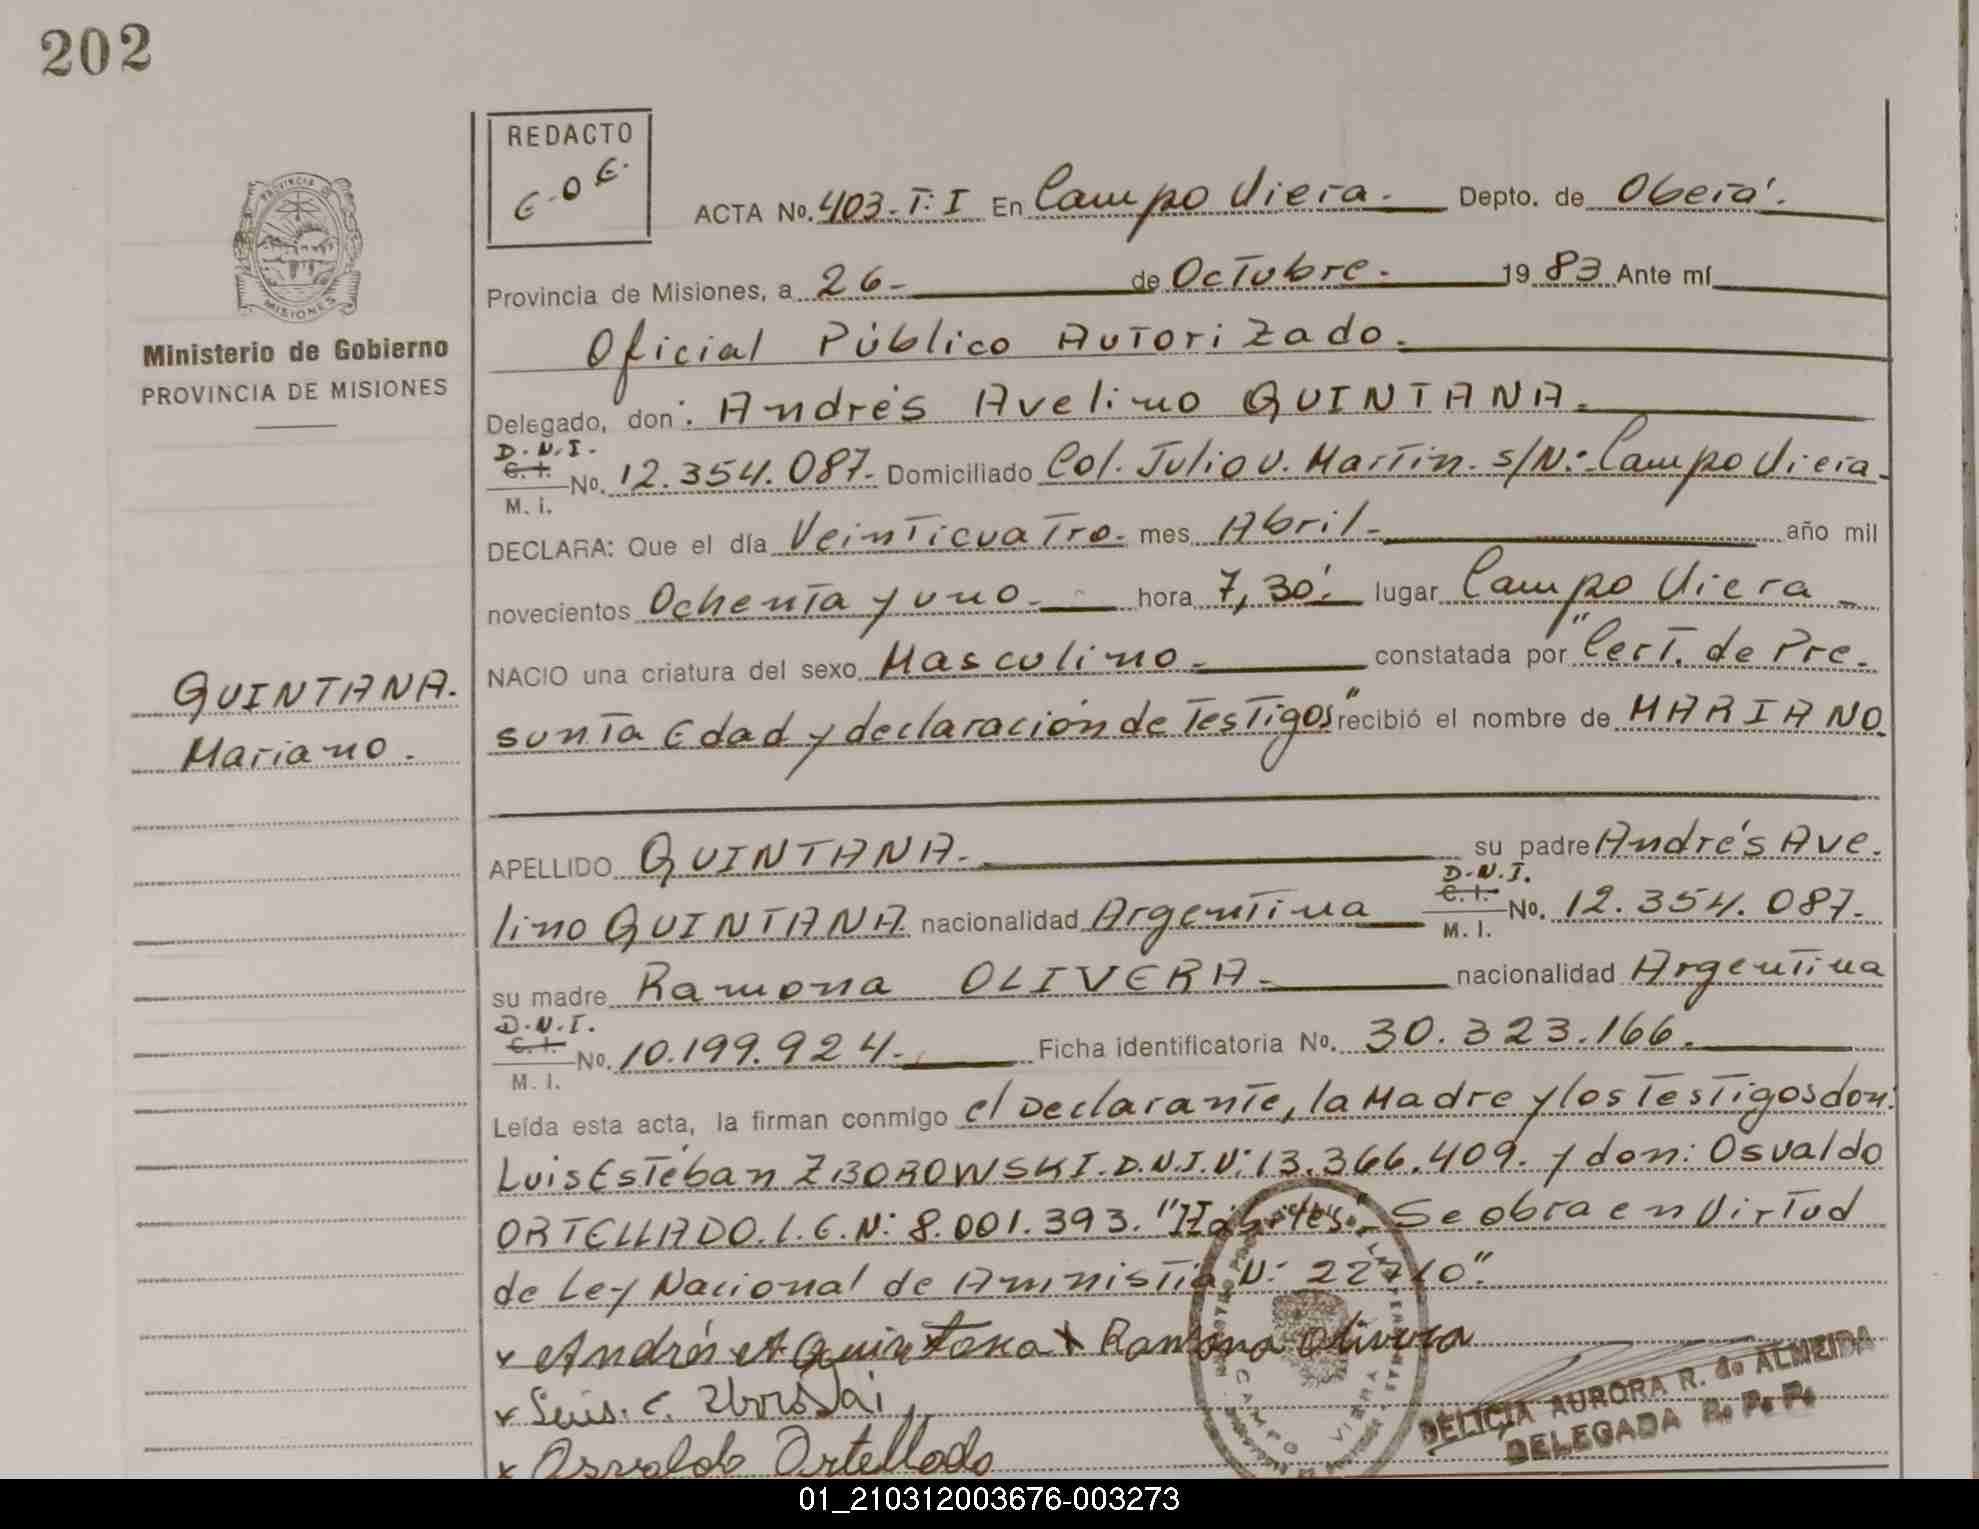 202
REDACTO
E.O.E.
ACTA No. 403.T:I En Campo Viera. Depto. de Oberá.
PROVINCIA DE
MISIONES
Ministerio de Gobierno
PROVINCIA DE MISIONES
Provincia de Misiones, a 26 de Octubre. 1983 Ante mí
Oficial Público Autorizado.
Delegado, don: Andrés Avelino QUINTANA.
D.N.I.
C. I.
M. I. No. 12.354.087. Domiciliado Col. Julio U. Martin. s/N: Campo Viera.
DECLARA: Que el día Veinticuatro. mes Abril. año mil
novecientos Ochenta y uno. hora 7,30'. lugar Campo Viera
NACIO una criatura del sexo Masculino. constatada por "Cert. de Pre.
QUINTANA.
Mariano.
sunta Edad y declaración de Testigos" recibió el nombre de MARIANO.
APELLIDO QUINTANA. su padre Andrés Ave.
lino QUINTANA. nacionalidad Argentina D.N.I. C. I. M. I. No. 12.354.087.
su madre Ramona OLIVERA. nacionalidad Argentina
D.N.I.
C. I.
M. I. No. 10.199.924. Ficha identificatoria No. 30.323.166.
Leída esta acta, la firman conmigo el Declarante, la Madre y los Testigos don:
Luis Esteban ZBOROWSKI. D.N.I.N: 13.366.409. y don: Osvaldo
ORTELLADO. L.E.N: 8.001.393. "Hábiles". Se obra en Virtud
de Ley Nacional de Amnistia N: 22710".
x Andrés A Quintana x Ramona Olivera
x Luis. E.
x Osvaldo Ortellado
CAMPO VIERA
DELICIA AURORA R. de ALMEIDA
DELEGADA R. P. P.
01_210312003676-003273